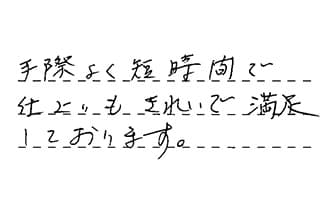 手際よく短時間で
仕上りもきれいで満足
しております。